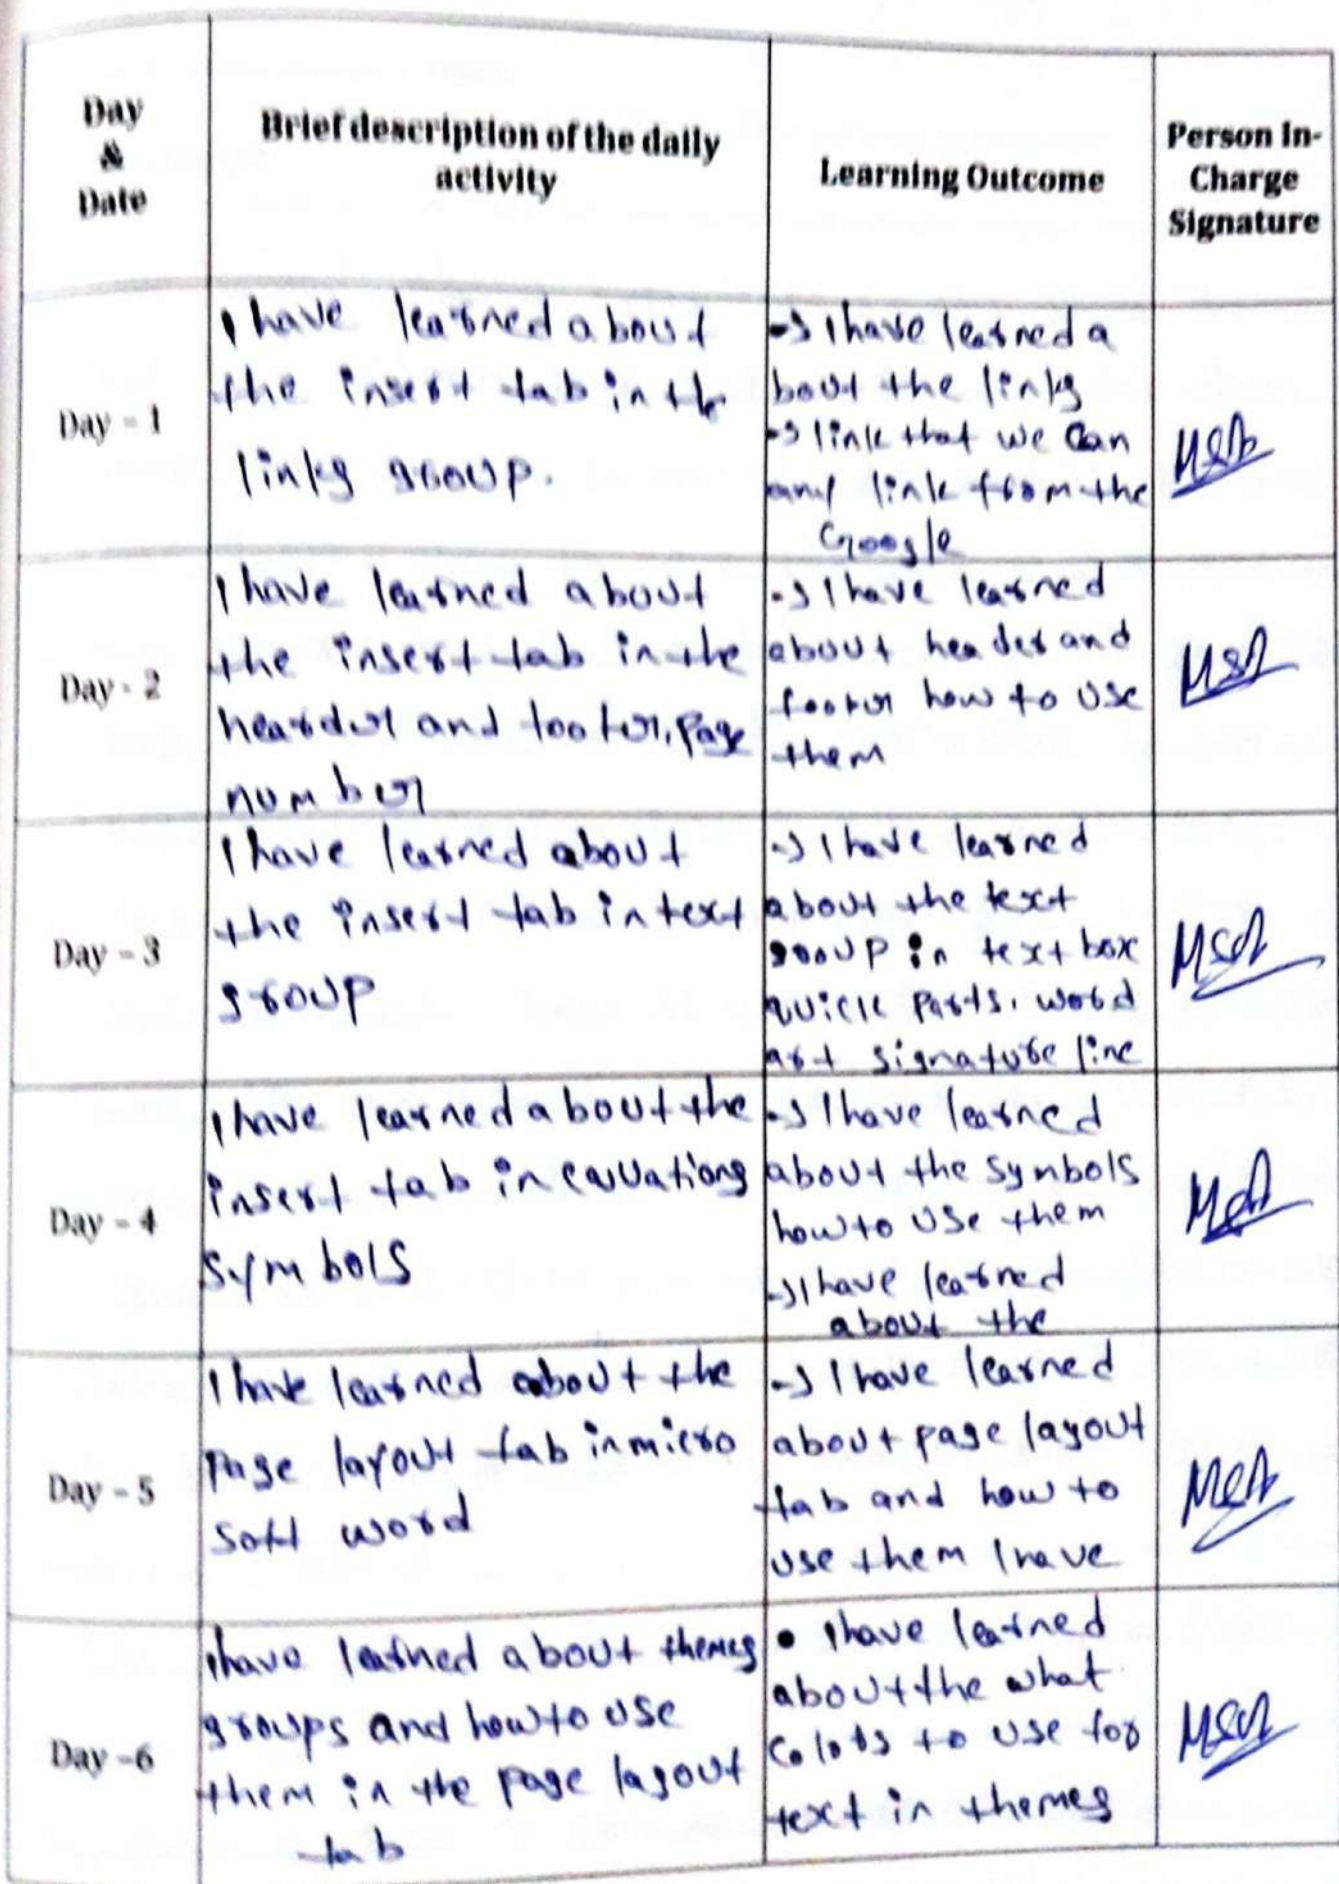 Day
&
Date
Brief description of the daily
activity
Learning Outcome
Person In-
Charge
Signature
Day - 1
I have learned about
the insert tab in the
links group.
→ I have learned a
bout the links
→ link that we can
any link from the
Google
Day - 2
I have learned about
the insert tab in the
hearder and footer, page
number
→ I have learned
about header and
footer how to use
them
Day - 3
I have learned about
the insert tab in text
group
→ I have learned
about the text
group in text box
quick parts. word
art signature line
Day - 4
I have learned about the
insert tab in equations
symbols
→ I have learned
about the symbols
how to use them
→ I have learned
about the
Day - 5
I have learned about the
page layout tab in micro
soft word
→ I have learned
about page layout
tab and how to
use them I have
Day - 6
I have learned about themes
groups and how to use
them in the page layout
tab
• I have learned
about the what
colors to use for
text in themes